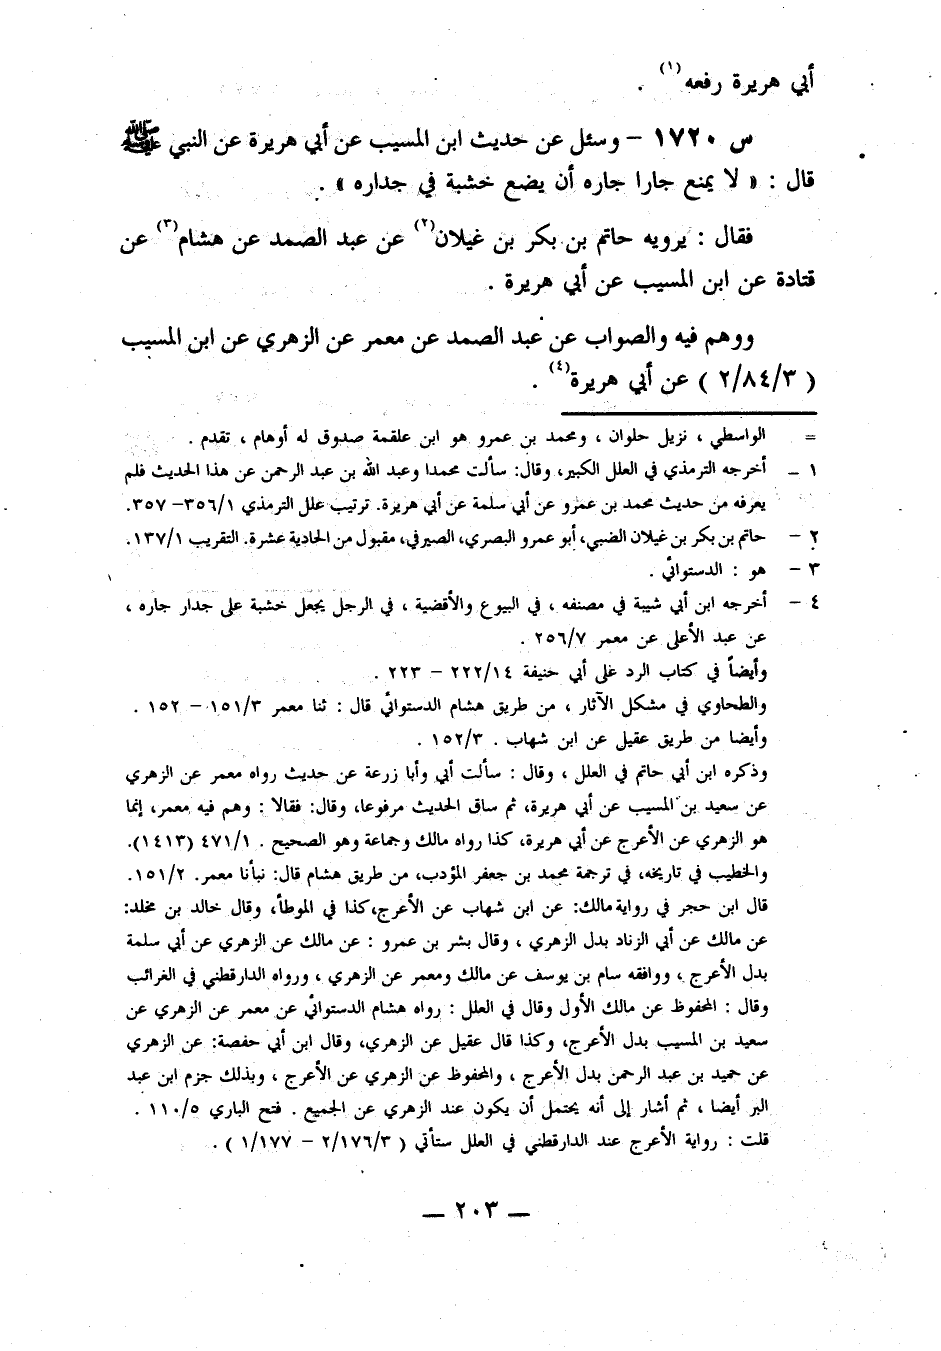 أبي هريرة رفعه(١) .
س ١٧٢٠ – وسئل عن حديث ابن المسيب عن أبي هريرة عن النبي ﷺ
قال : « لا يمنع جارا جاره أن يضع خشبة في جداره » .
فقال : يرويه حاتم بن بكر بن غيلان(٢) عن عبد الصمد عن هشام(٣) عن
قتادة عن ابن المسيب عن أبي هريرة .
ووهم فيه والصواب عن عبد الصمد عن معمر عن الزهري عن ابن المسيب
( ٢/٨٤/٣ ) عن أبي هريرة(٤) .
= الواسطي ، نزيل حلوان ، ومحمد بن عمرو هو ابن علقمة صدوق له أوهام ، تقدم .
١ – أخرجه الترمذي في العلل الكبير، وقال: سألت محمدا وعبد الله بن عبد الرحمن عن هذا الحديث فلم
يعرفه من حديث محمد بن عمرو عن أبي سلمة عن أبي هريرة. ترتيب علل الترمذي ٣٥٦/١– ٣٥٧.
٢ – حاتم بن بكر بن غيلان الضبي، أبو عمرو البصري، الصيرفي، مقبول من الحادية عشرة. التقريب ١٣٧/١.
٣ – هو : الدستوائي .
٤ – أخرجه ابن أبي شيبة في مصنفه ، في البيوع والأقضية ، في الرجل يجعل خشبة على جدار جاره ،
عن عبد الأعلى عن معمر ٢٥٦/٧ .
وأيضاً في كتاب الرد على أبي حنيفة ٢٢٢/١٤ – ٢٢٣ .
والطحاوي في مشكل الآثار ، من طريق هشام الدستوائي قال : ثنا معمر ١٥١/٣ – ١٥٢ .
وأيضا من طريق عقيل عن ابن شهاب . ١٥٢/٣ .
وذكره ابن أبي حاتم في العلل ، وقال : سألت أبي وأبا زرعة عن حديث رواه معمر عن الزهري
عن سعيد بن المسيب عن أبي هريرة، ثم ساق الحديث مرفوعا، وقال: فقالا : وهم فيه معمر، إنما
هو الزهري عن الأعرج عن أبي هريرة، كذا رواه مالك وجماعة وهو الصحيح . ٤٧١/١ (١٤١٣).
والخطيب في تاريخه، في ترجمة محمد بن جعفر المؤدب، من طريق هشام قال: نبأنا معمر. ١٥١/٢.
قال ابن حجر في رواية مالك: عن ابن شهاب عن الأعرج،كذا في الموطأ، وقال خالد بن مخلد:
عن مالك عن أبي الزناد بدل الزهري ، وقال بشر بن عمرو : عن مالك عن الزهري عن أبي سلمة
بدل الأعرج ، ووافقه سام بن يوسف عن مالك ومعمر عن الزهري ، ورواه الدارقطني في الغرائب
وقال : المحفوظ عن مالك الأول وقال في العلل : رواه هشام الدستوائي عن معمر عن الزهري عن
سعيد بن المسيب بدل الأعرج، وكذا قال عقيل عن الزهري، وقال ابن أبي حفصة: عن الزهري
عن حميد بن عبد الرحمن بدل الأعرج ، والمحفوظ عن الزهري عن الأعرج ، وبذلك جزم ابن عبد
البر أيضا ، ثم أشار إلى أنه يحتمل أن يكون عند الزهري عن الجميع . فتح الباري ١١٠/٥ .
قلت : رواية الأعرج عند الدارقطني في العلل ستأتي ( ٢/١٧٦/٣ – ١/١٧٧ ) .
— ٢٠٣ —